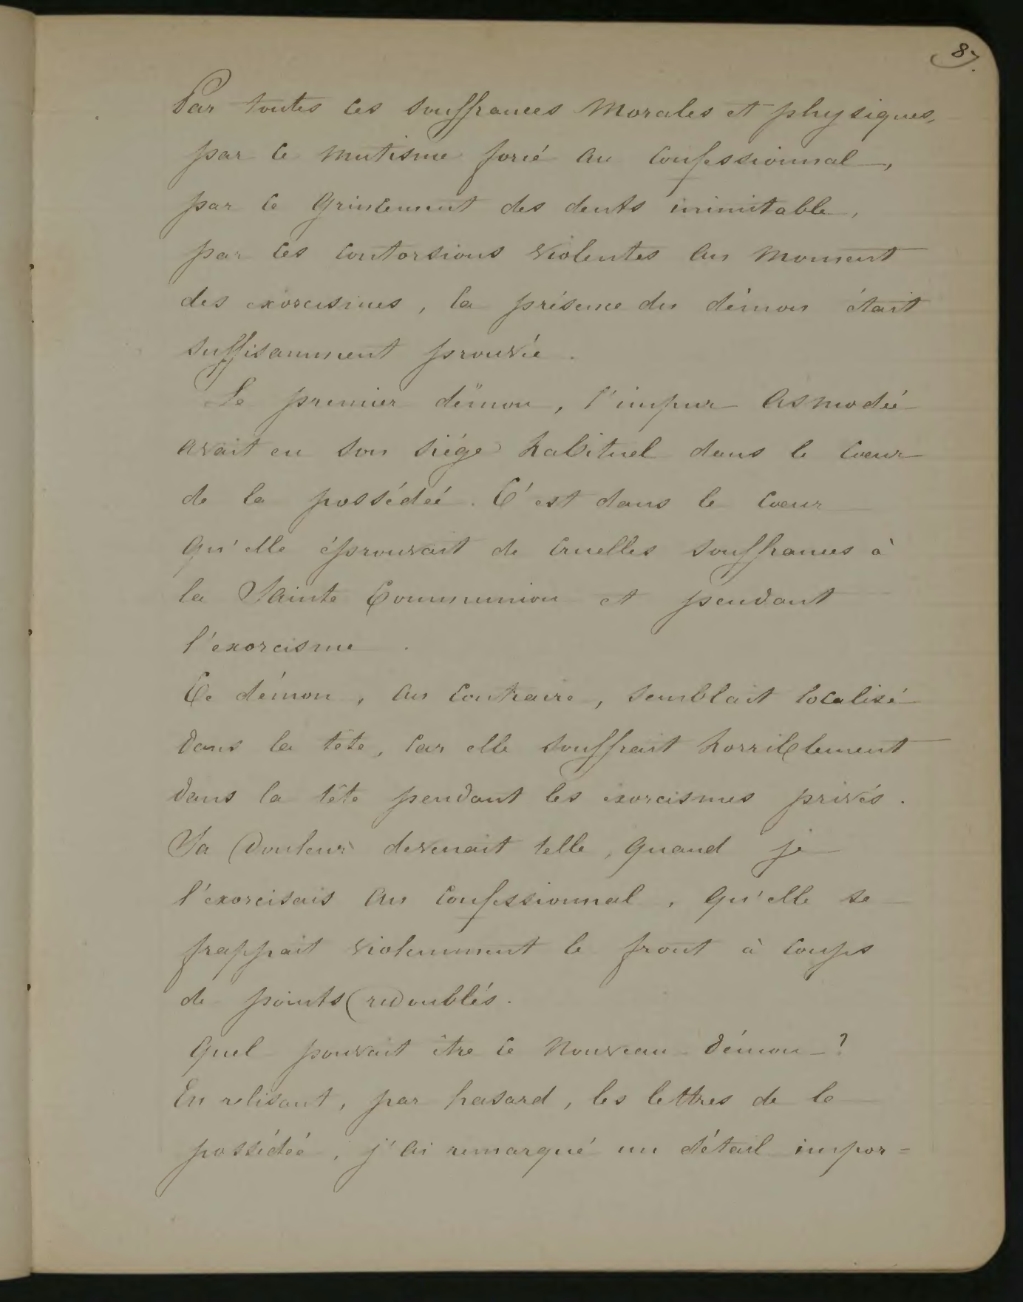 87.
Par toutes ces souffrances morales et physiques,
par ce mutisme forcé au confessionnal,
par ce grincement des dents inimitable,
par ces contorsions violentes au moment
des exorcismes, la présence du démon était
suffisamment prouvée.
Le premier démon, l'impur Asmodée
avait eu son siége habituel dans le cœur
de la possédée. C'est dans le cœur
qu'elle éprouvait de cruelles souffrances à
la Sainte Communion et pendant
l'exorcisme.
Ce démon, au contraire, semblait localisé
dans la tête, car elle souffrait horriblement
dans la tête pendant les exorcismes privés.
Sa douleur devenait telle, quand je
l'exorcisais au confessionnal, qu'elle se
frappait violemment le front à coups
de points redoublés.
Quel pouvait être ce nouveau démon ?
En relisant, par hasard, les lettres de la
possédée, j'ai remarqué un détail impor=